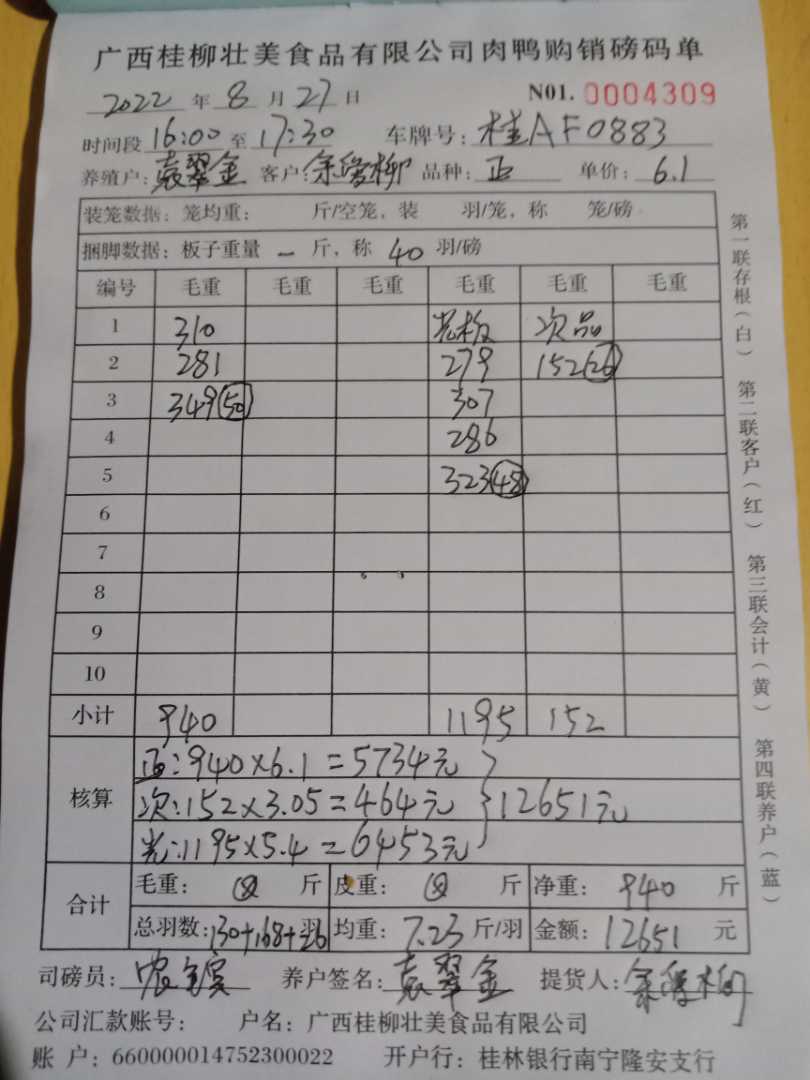 广西桂柳壮美食品有限公司肉鸭购销磅码单
2022 年 8 月 27 日 N01. 0004309
时间段 16:00 至 17:30 车牌号: 桂AF0883
养殖户: 袁翠金 客户: 余 柳 品种: 正 单价: 6.1
装笼数据: 笼均重: 斤/空笼, 装 羽/笼, 称 笼/磅
捆脚数据: 板子重量 — 斤, 称 40 羽/磅
编号 毛重 毛重 毛重 毛重 毛重 毛重
1 310 光板 次品
2 281 279 152(26)
3 349(50) 307
4 286
5 323(48)
6
7
8
9
10
小计 940 1195 152
核算 正:940×6.1=5734元
次:152×3.05=464元 }12651元
光:1195×5.4=6453元
合计 毛重: 斤 皮重: 斤 净重: 940 斤
总羽数: 130+168+26 均重: 7.23 斤/羽 金额: 12651 元
司磅员: 农 养户签名: 袁翠金 提货人: 余 柳
公司汇款账号: 户名: 广西桂柳壮美食品有限公司
账 户: 660000014752300022 开户行: 桂林银行南宁隆安支行
第一联存根(白) 第二联客户(红) 第三联会计(黄) 第四联养户(蓝)